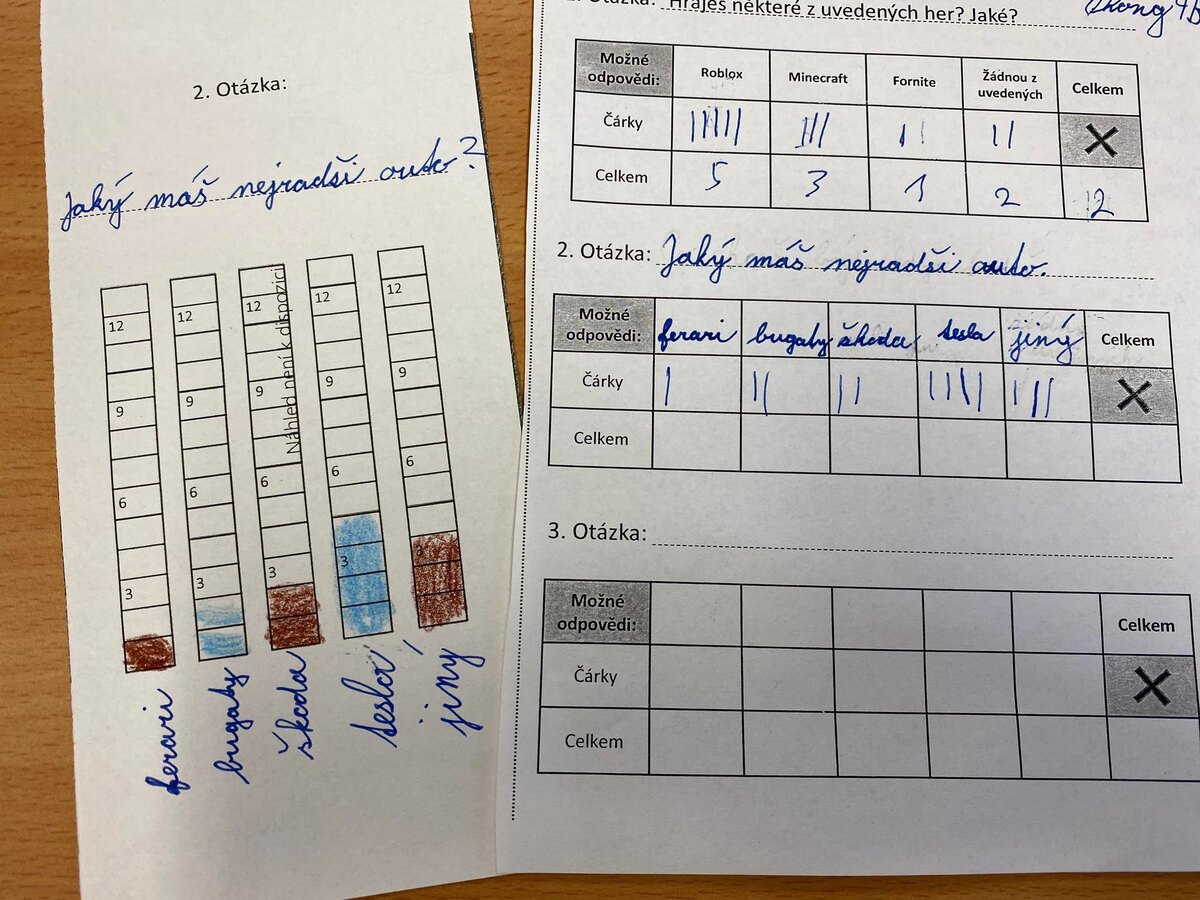 2. Otázka:
Jaký máš nejradši auto?
12 12 12 12 12
9 9 9 9 9
6 6 6 6 6
3 3 3 3 3
Náhled není k dispozici
ferari bugaby škoda tesla jiný
Otázka: Hraješ některé z uvedených her? Jaké?
Možné odpovědi: Roblox Minecraft Fornite Žádnou z uvedených Celkem
Čárky ||||| ||| || || X
Celkem 5 3 1 2 12
2. Otázka: Jaký máš nejradši auto.
Možné odpovědi: ferari bugaby škoda tesla jiný Celkem
Čárky | || || |||| ||| X
Celkem
3. Otázka:
Možné odpovědi: Celkem
Čárky X
Celkem